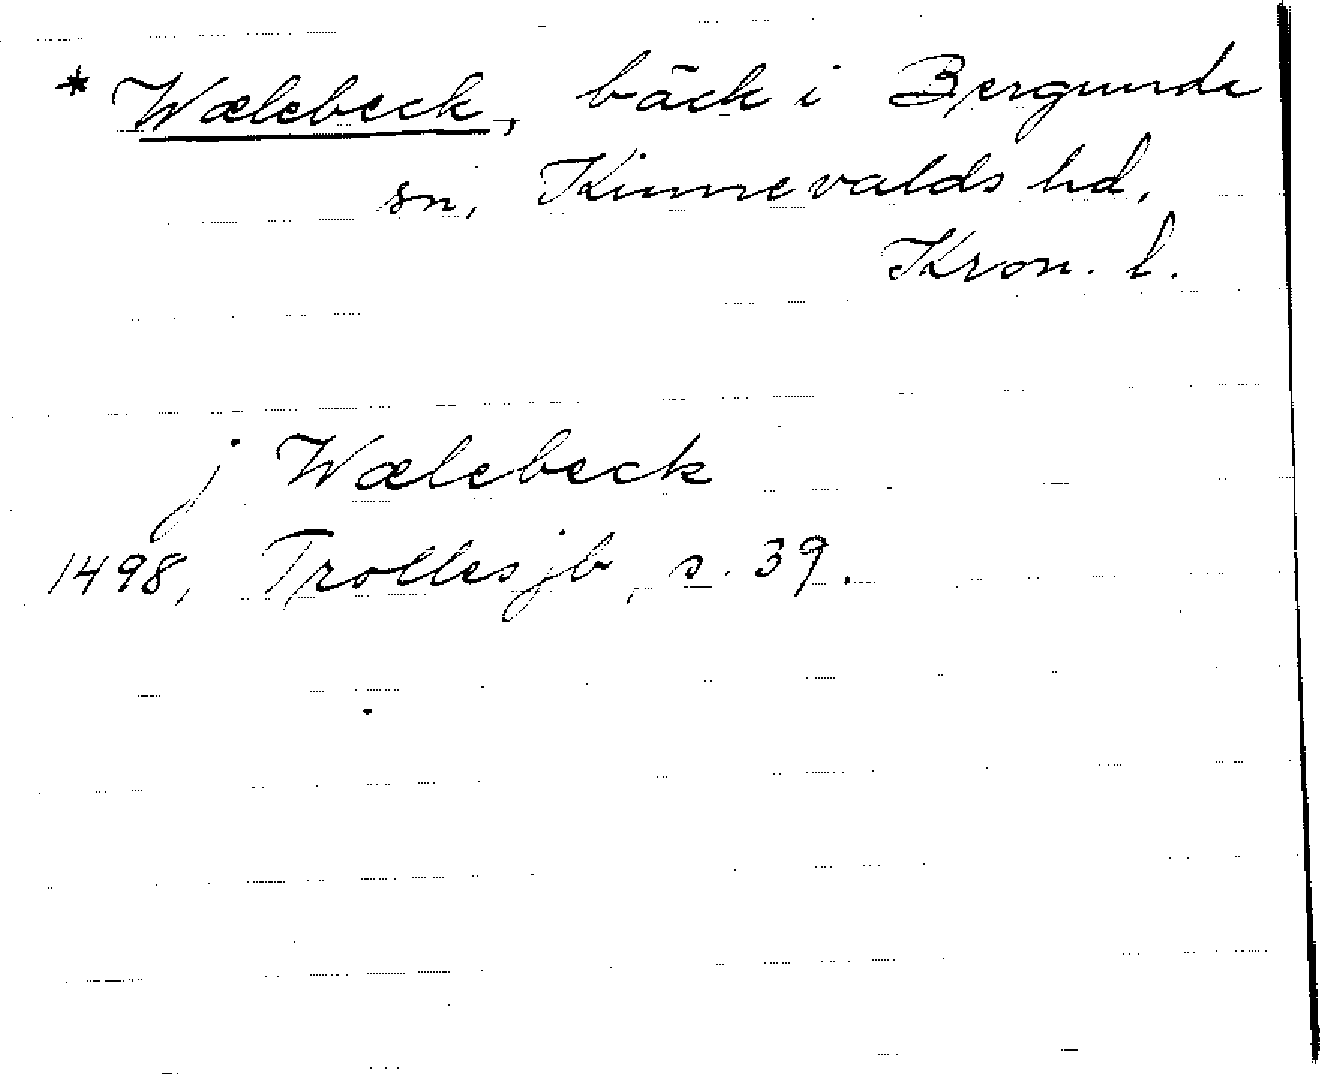 * Wælebeck, bäck i Bergunda
sn, Kinnevalds hd,
Kron. l.
j Wælebeck
1498, Trollesjb, s. 39.